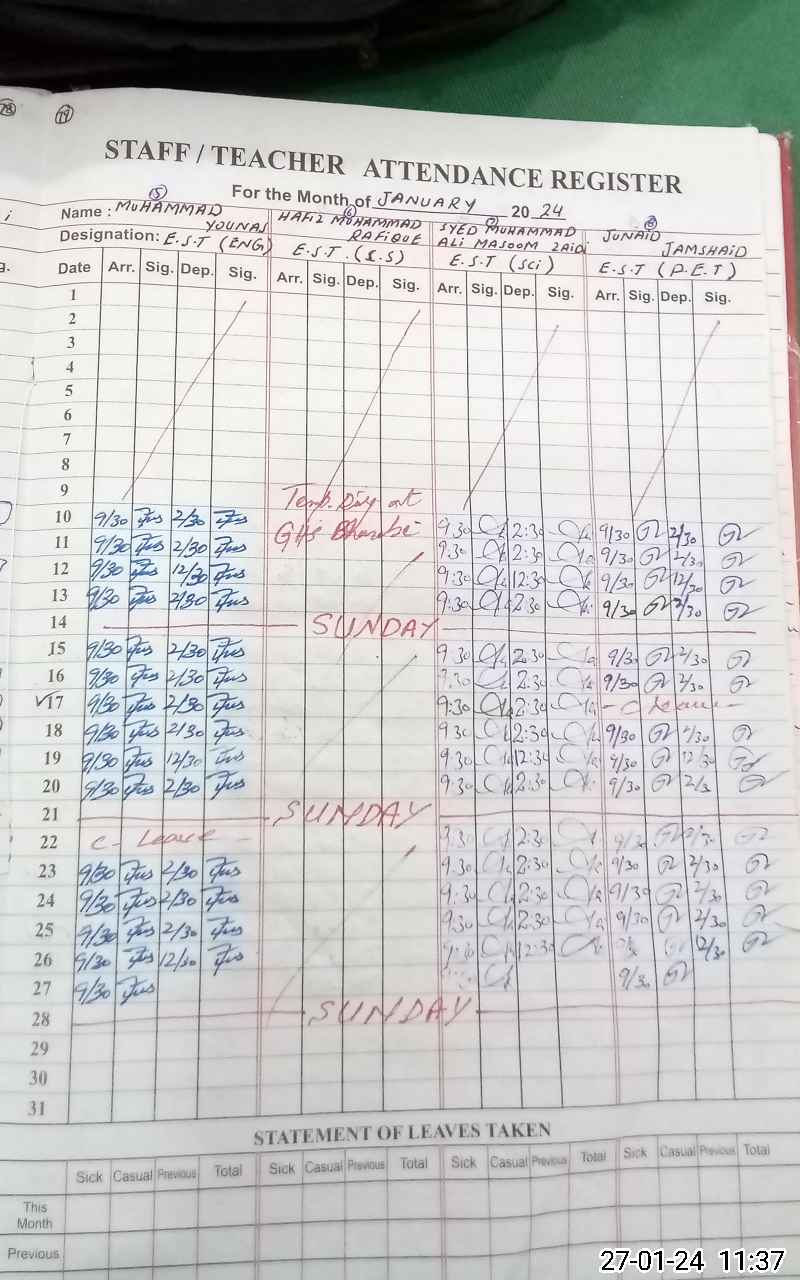 19
STAFF / TEACHER ATTENDANCE REGISTER
For the Month of JANUARY 20 24
Name : MUHAMMAD YOUNAS HAFIZ MUHAMMAD RAFIQUE SYED MUHAMMAD ALI MASOOM ZAIDI JUNAID JAMSHAID
Designation: E.S.T (ENG) E.S.T. (S.S) E.S.T (Sci) E.S.T (P.E.T)
Date Arr. Sig. Dep. Sig. Arr. Sig. Dep. Sig. Arr. Sig. Dep. Sig. Arr. Sig. Dep. Sig.
1
2
3
4
5
6
7
8
9 Temp. Dty at
10 9/30 2/30 GHS 9.30 2:30 9/30 2/30
11 9/30 2/30 9.30 2:30 9/30 2/30
12 9/30 12/30 9:30 12:30 9/30 12/30
13 9/30 2/30 9:30 2:30 9/30 2/30
14 SUNDAY
15 9/30 2/30 9.30 2:30 9/30 2/30
16 9/30 2/30 9.30 2:30 9/30 2/30
17 9/30 2/30 9:30 2:30 - C Leave -
18 9/30 2/30 9.30 2:30 9/30 2/30
19 9/30 12/30 9.30 12:30 9/30 12/30
20 9/30 2/30 9.30 2:30 9/30 2/3
21 SUNDAY
22 C - Leave - 9.30 2:30 9/30 2/30
23 9/30 2/30 9.30 2:30 9/30 2/30
24 9/30 2/30 9.30 2:30 9/30 2/30
25 9/30 2/30 9.30 2:30 9/30 2/30
26 9/30 12/30 12:30 12/30
27 9/30 9/30
28 SUNDAY
29
30
31
STATEMENT OF LEAVES TAKEN
Sick Casual Previous Total Sick Casual Previous Total Sick Casual Previous Total Sick Casual Previous Total
This Month
Previous
27-01-24 11:37